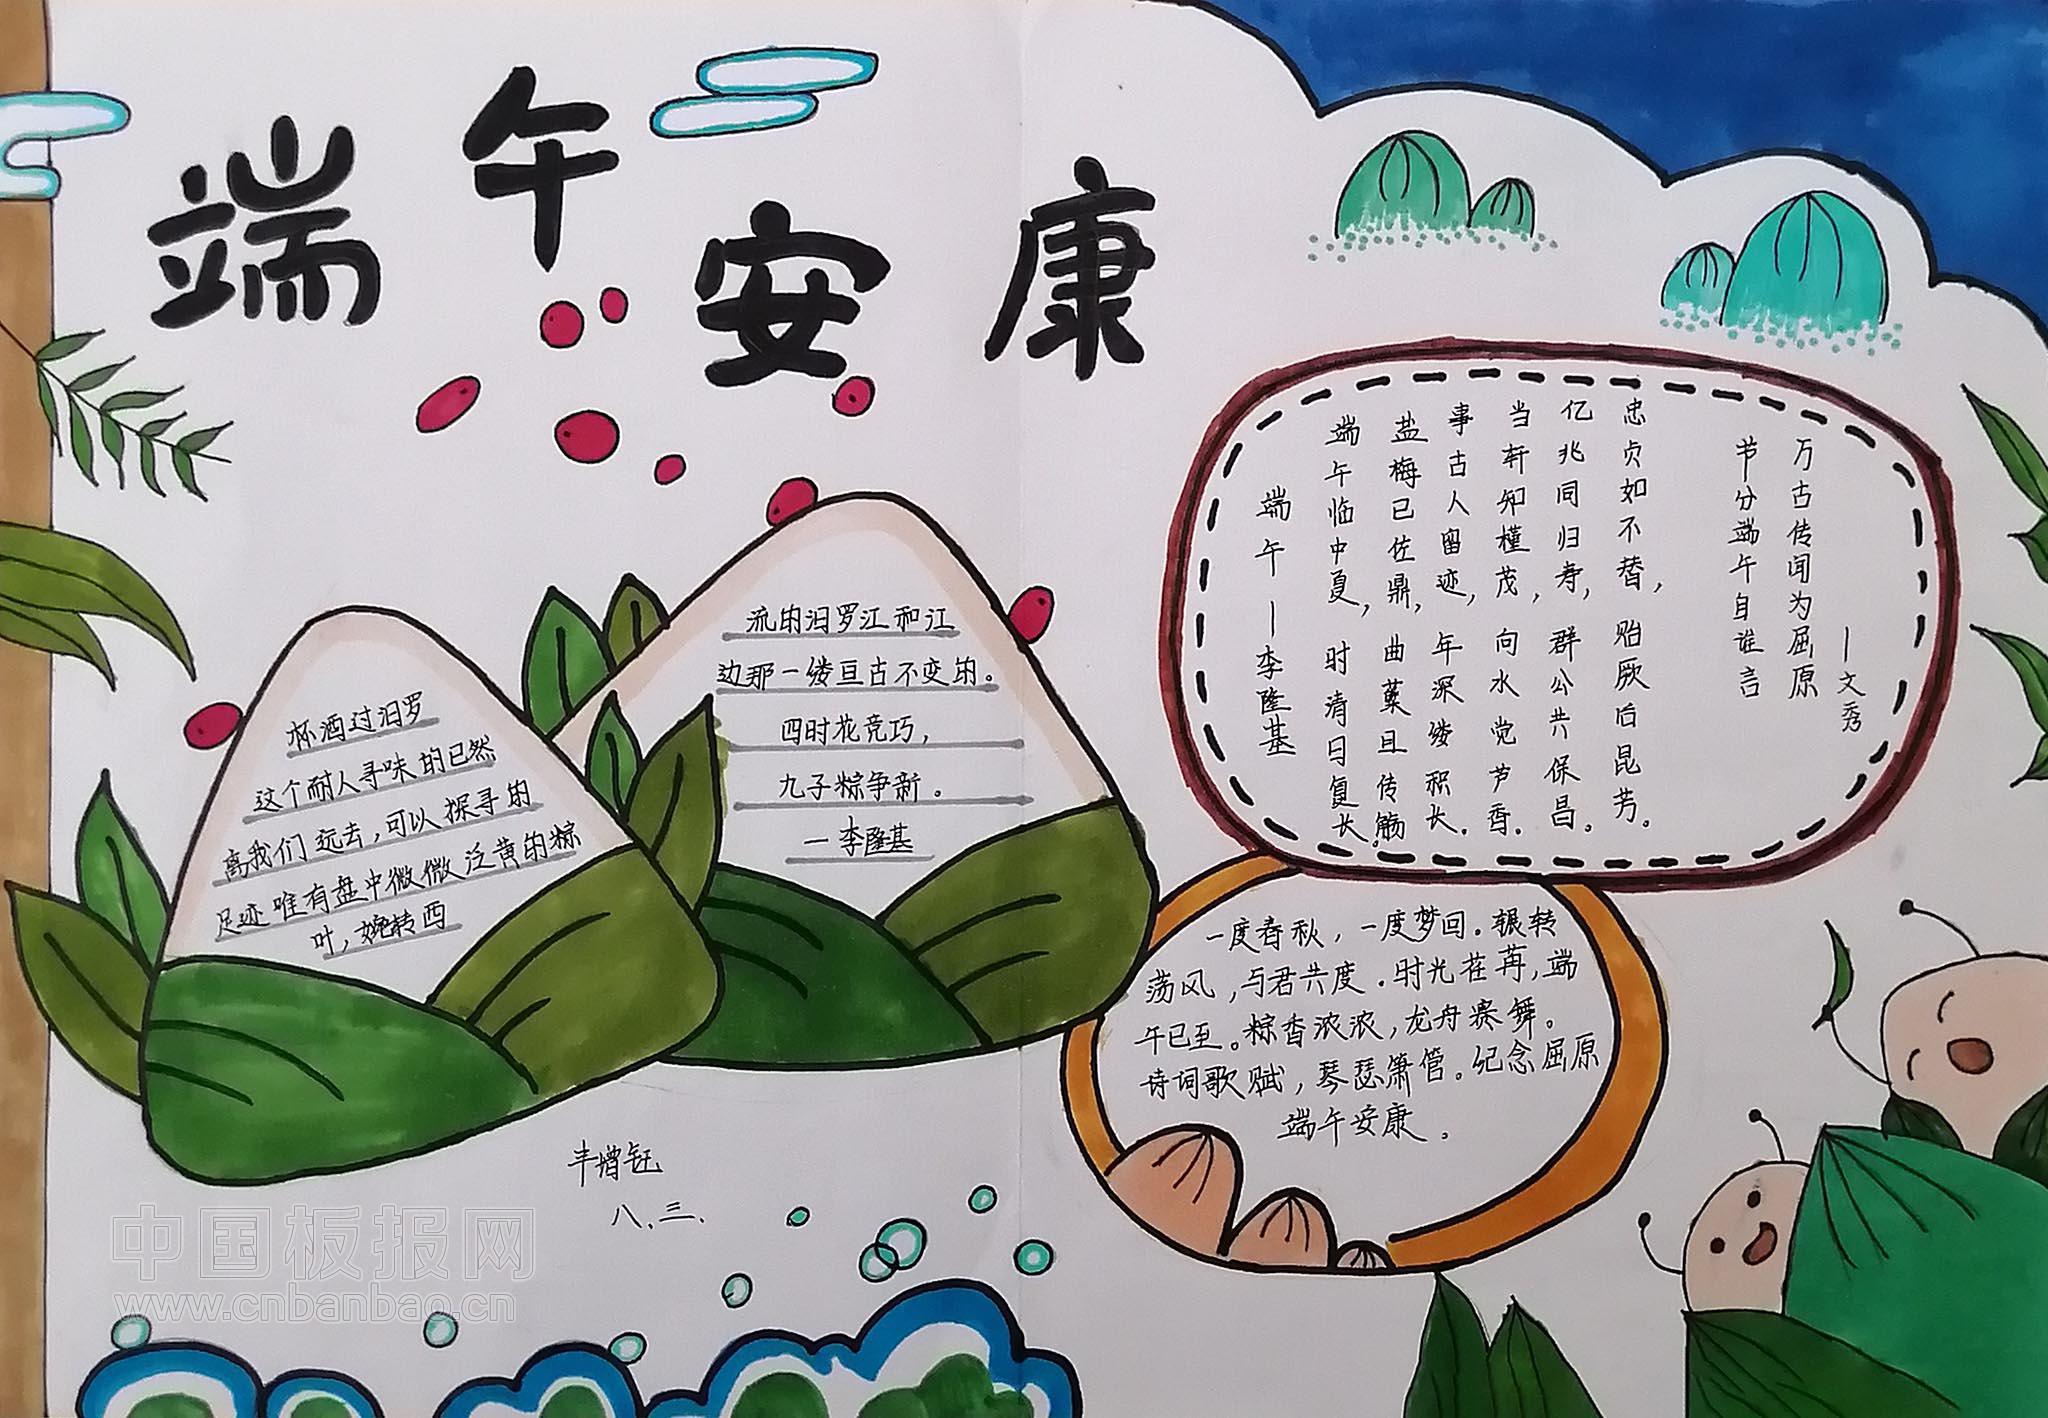 端午安康
杯酒过汨罗
这个耐人寻味的已然
离我们远去,可以探寻的
足迹唯有盘中微微泛黄的粽
叶,婉转西
流的汨罗江和江
边那一缕亘古不变的。
四时花竞巧,
九子粽争新。
—李隆基
端午—李隆基
端午临中夏,时清日复长。
盐梅已佐鼎,曲蘖且传觞。
事古人留迹,年深缕积长。
当轩知槿茂,向水觉芦香。
亿兆同归寿,群公共保昌。
忠贞如不替,贻厥后昆芳。
节分端午自谁言
万古传闻为屈原
—文秀
一度春秋,一度梦回。辗转
荡风,与君共度。时光荏苒,端
午已至。粽香浓浓,龙舟赛舞。
诗词歌赋,琴瑟箫管。纪念屈原
端午安康。
丰增钰
八、三、
中国板报网
www.cnbanbao.cn